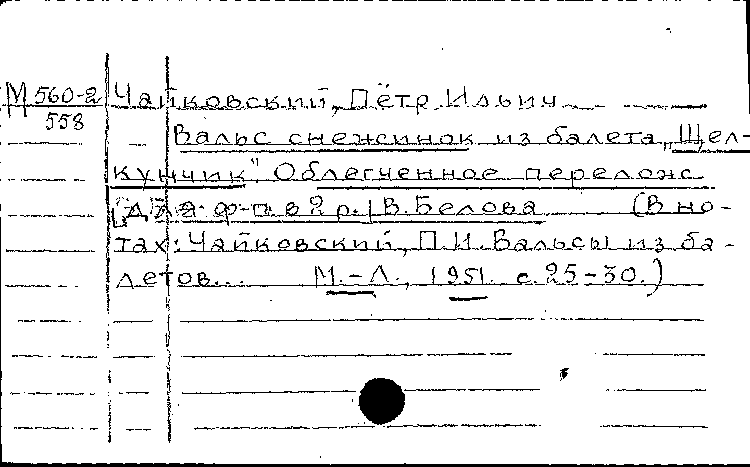 М 560-2 Чайковский, Пётр Ильич
558
Вальс снежинок из балета „Щел-
кунчик". Облегченное перелож.
[для ф-п. в 2 р.] В. Белова (В но-
тах: Чайковский, П.И. Вальсы из ба-
летов... М.-Л., 1951. с. 25-30.)